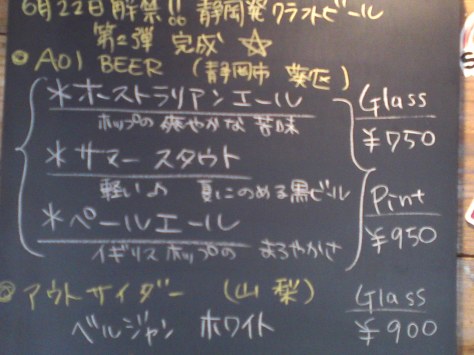 6月22日解禁!! 静岡発クラフトビール
第2弾 完成 ☆
AOI BEER (静岡市 葵区)
*ホーストラリアンエール
ホップの爽やかな苦味
*サマースタウト
軽い♪ 夏にのめる黒ビール
*ペールエール
イギリスホップの まろやかさ
Glass
¥750
Pint
¥950
アウトサイダー (山梨)
ベルジャン ホワイト
Glass
¥900